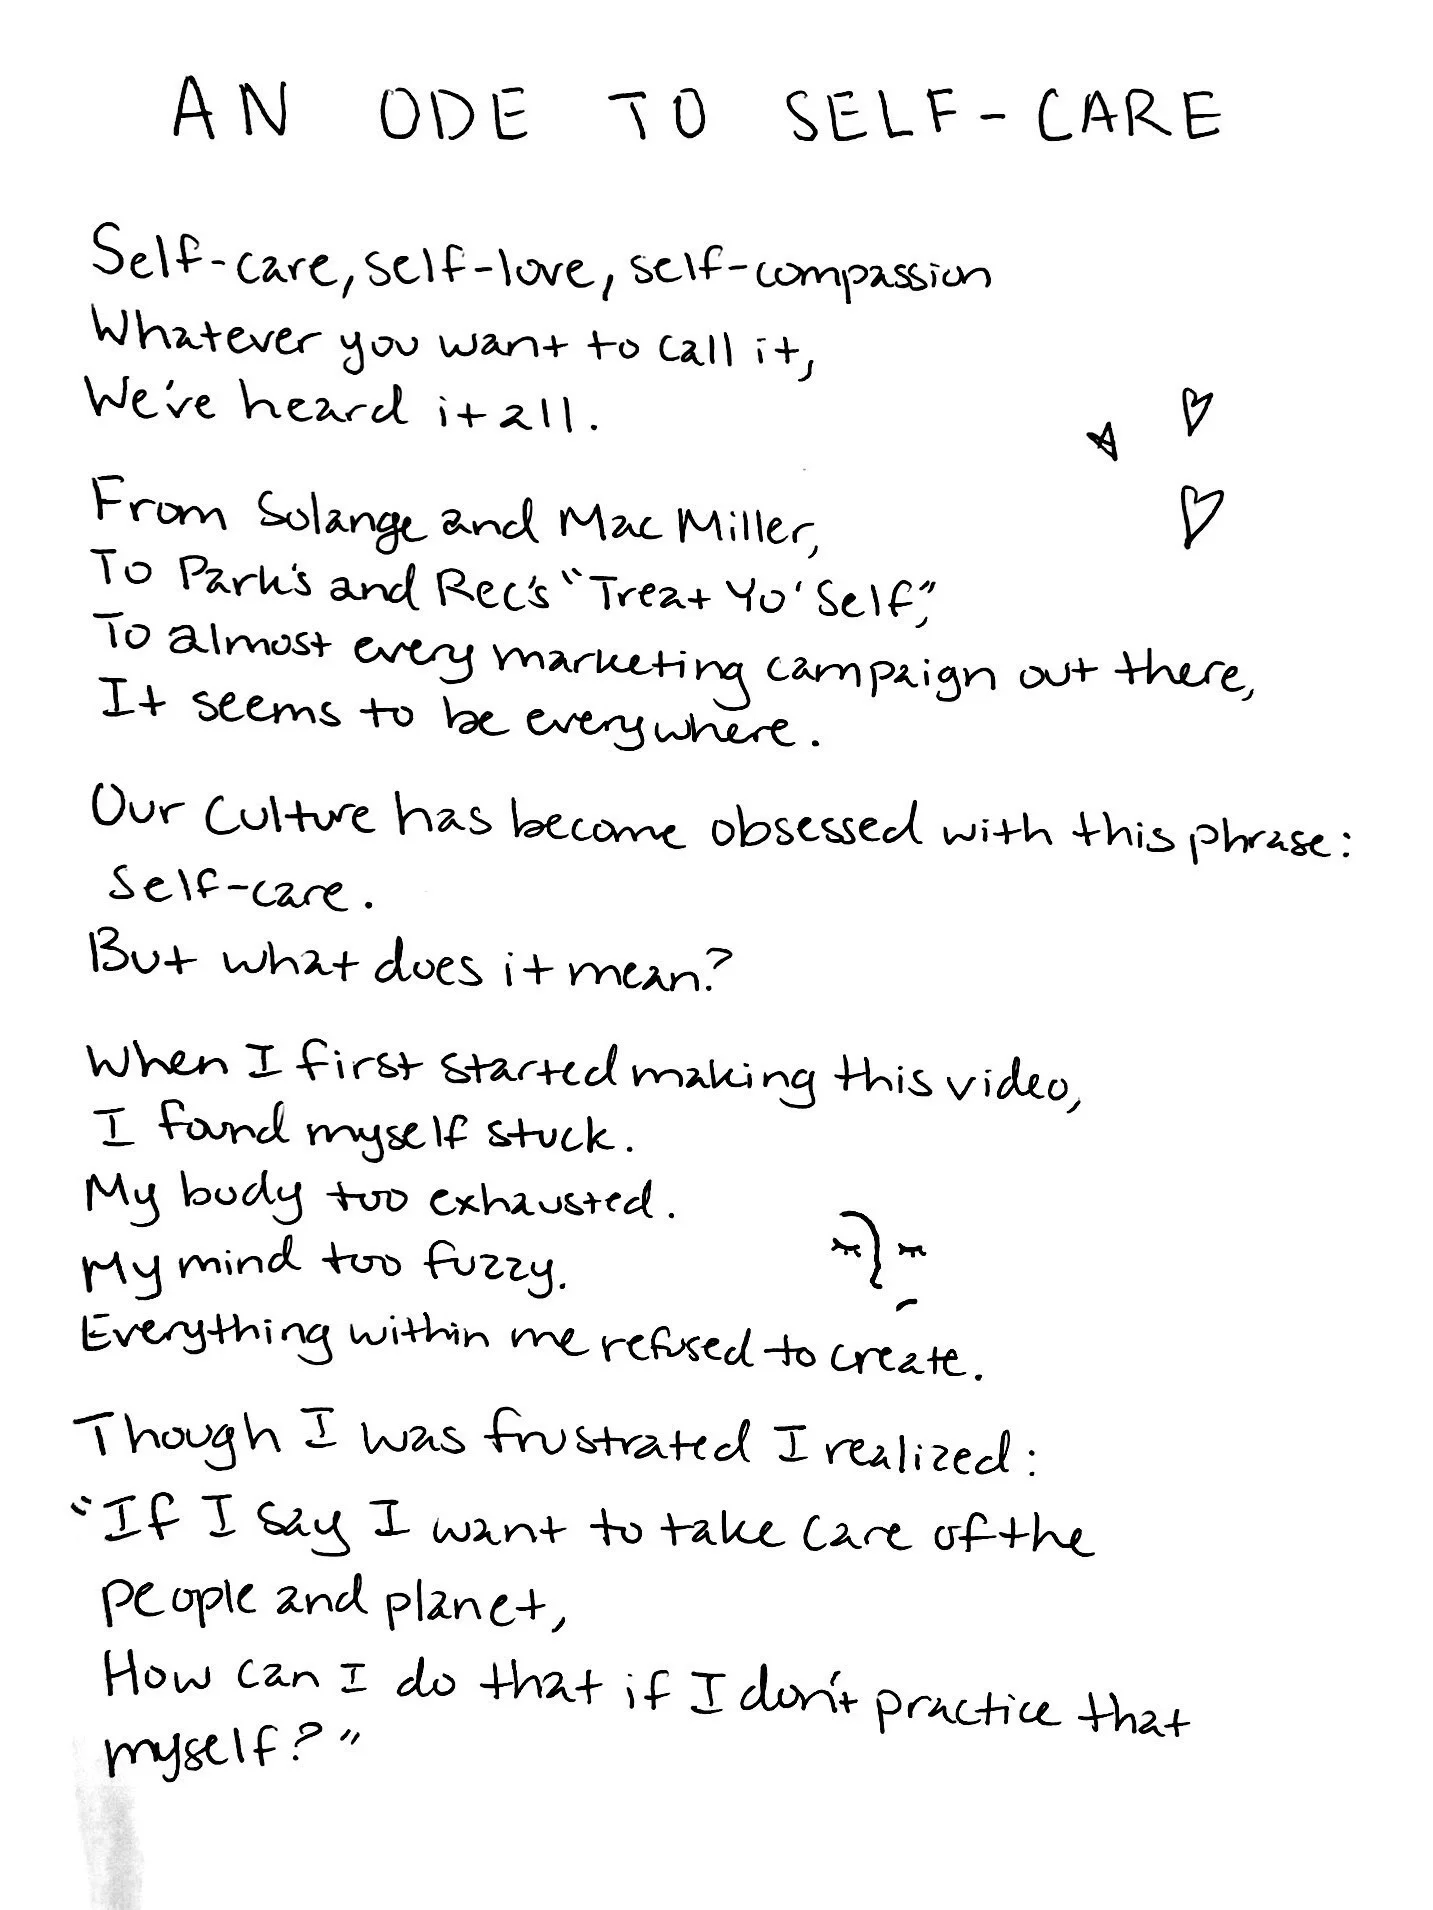 AN ODE TO SELF-CARE
Self-care, self-love, self-compassion
Whatever you want to call it,
We've heard it all.
From Solange and Mac Miller,
To Park's and Rec's "Treat Yo' Self,"
To almost every marketing campaign out there,
It seems to be everywhere.
Our culture has become obsessed with this phrase:
Self-care.
But what does it mean?
When I first started making this video,
I found myself stuck.
My body too exhausted.
My mind too fuzzy.
Everything within me refused to create.
Though I was frustrated I realized:
"If I say I want to take care of the
people and planet,
How can I do that if I don't practice that
myself?"